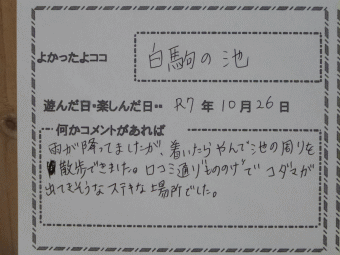 よかったよココ 白駒の池
遊んだ日・楽しんだ日・・ R7 年 10 月 26 日
何かコメントがあれば
雨が降ってましたが、着いたらやんで池の周りを
散歩できました。口コミ通り"もののけ"で コダマが
出てきそうなステキな場所でした。